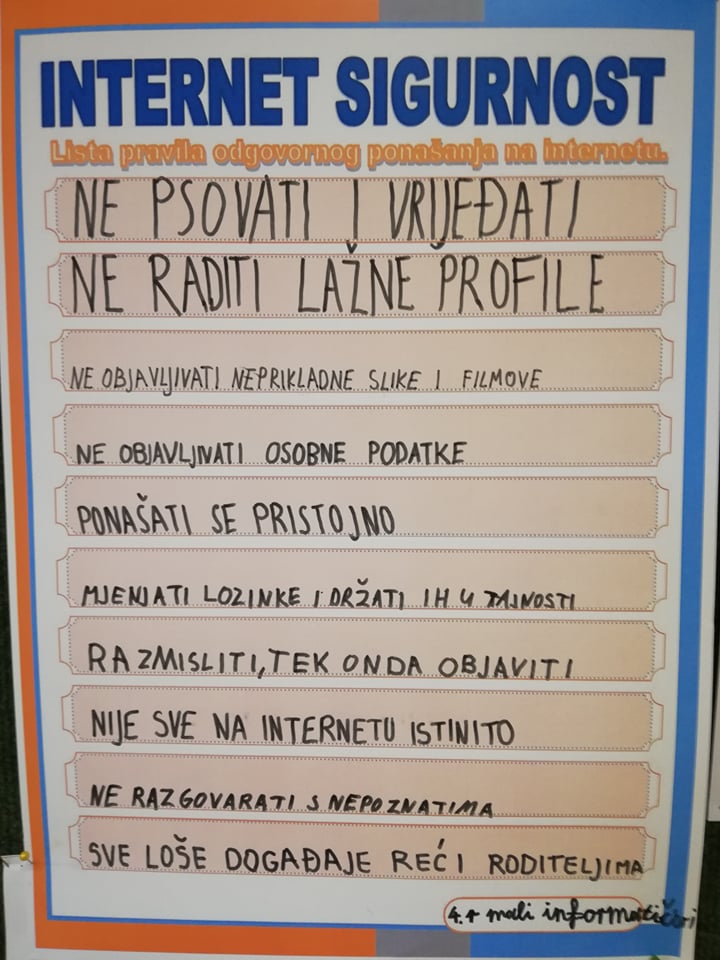 INTERNET SIGURNOST
Lista pravila odgovornog ponašanja na internetu.
NE PSOVATI I VRIJEĐATI
NE RADITI LAŽNE PROFILE
NE OBJAVLJIVATI NEPRIKLADNE SLIKE I FILMOVE
NE OBJAVLJIVATI OSOBNE PODATKE
PONAŠATI SE PRISTOJNO
MJENJATI LOZINKE I DRŽATI IH U TAJNOSTI
RAZMISLITI, TEK ONDA OBJAVITI
NIJE SVE NA INTERNETU ISTINITO
NE RAZGOVARATI S NEPOZNATIMA
SVE LOŠE DOGAĐAJE REĆI RODITELJIMA
4.r mali informatičari